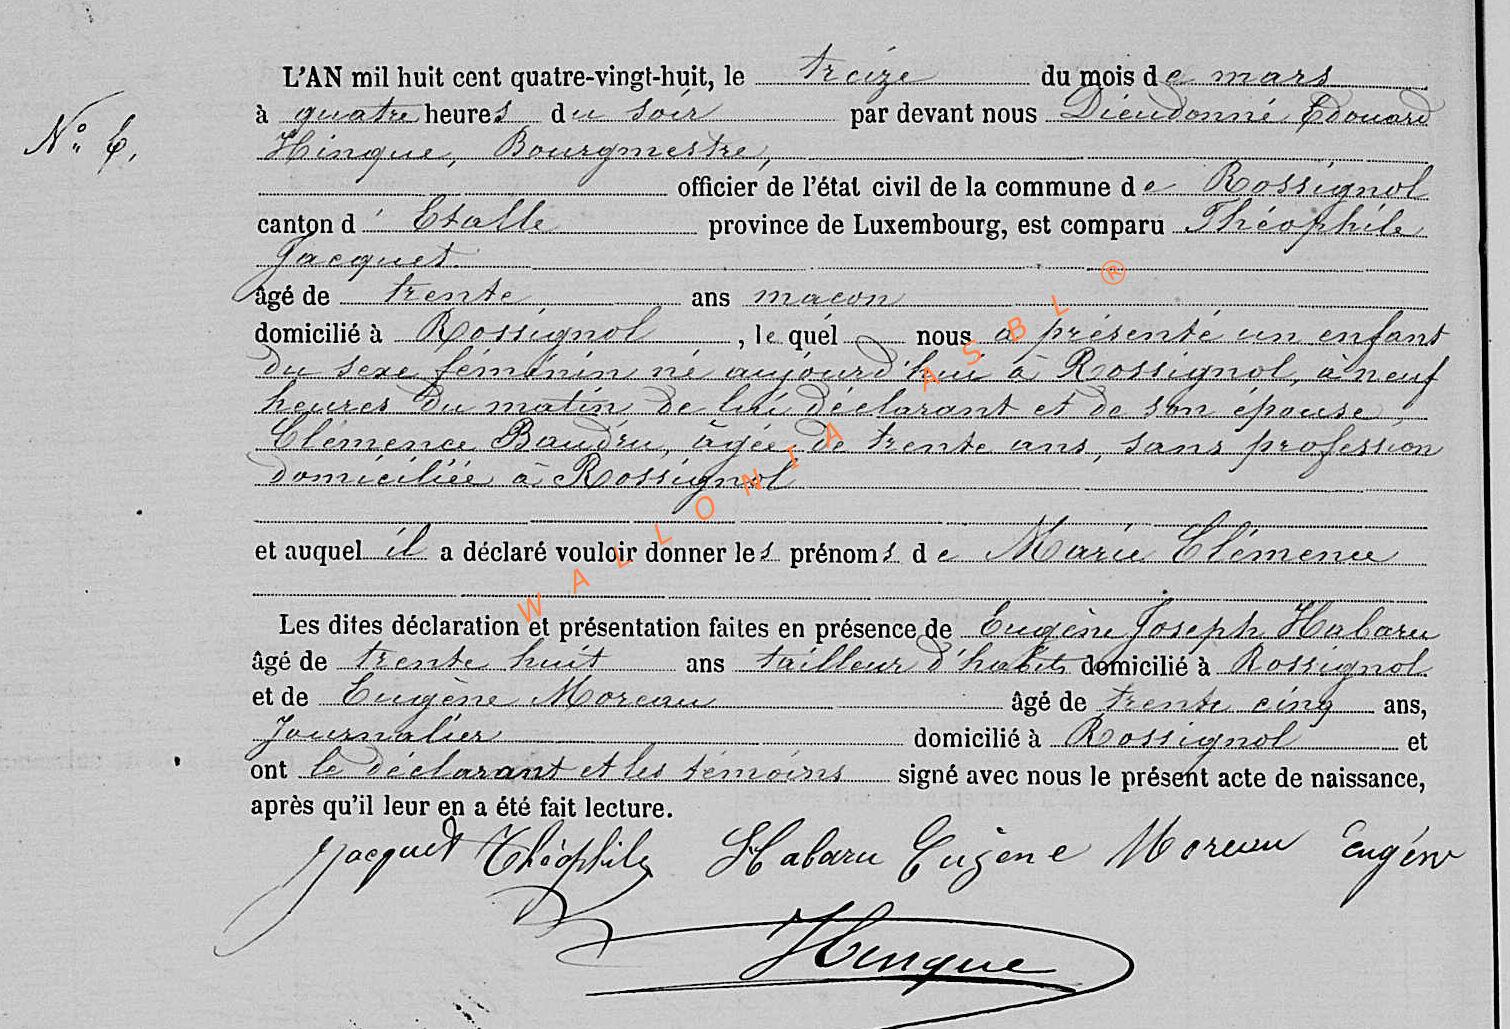 L'AN mil huit cent quatre-vingt-huit, le treize du mois de mars
N° 6.
à quatre heures du soir par devant nous Dieudonné Edouard
Hinque, Bourgmestre,
officier de l'état civil de la commune de Rossignol
canton d'Etalle province de Luxembourg, est comparu Théophile
Jacquet
âgé de trente ans maçon
domicilié à Rossignol, le quel nous a présenté un enfant
du sexe féminin né aujourd'hui à Rossignol, à neuf
heures du matin de lui déclarant et de son épouse
Clémence Baudru, âgée de trente ans, sans profession
domiciliée à Rossignol
et auquel il a déclaré vouloir donner les prénoms de Marie Clémence
Les dites déclaration et présentation faites en présence de Eugène Joseph Habaru
âgé de trente huit ans tailleur d'habits domicilié à Rossignol
et de Eugène Moreau âgé de trente cinq ans,
Journalier domicilié à Rossignol et
ont le déclarant et les témoins signé avec nous le présent acte de naissance,
après qu'il leur en a été fait lecture.
Jacquet Théophile Habaru Eugène Moreau Eugène
Hinque
WALLONIA ASBL ®